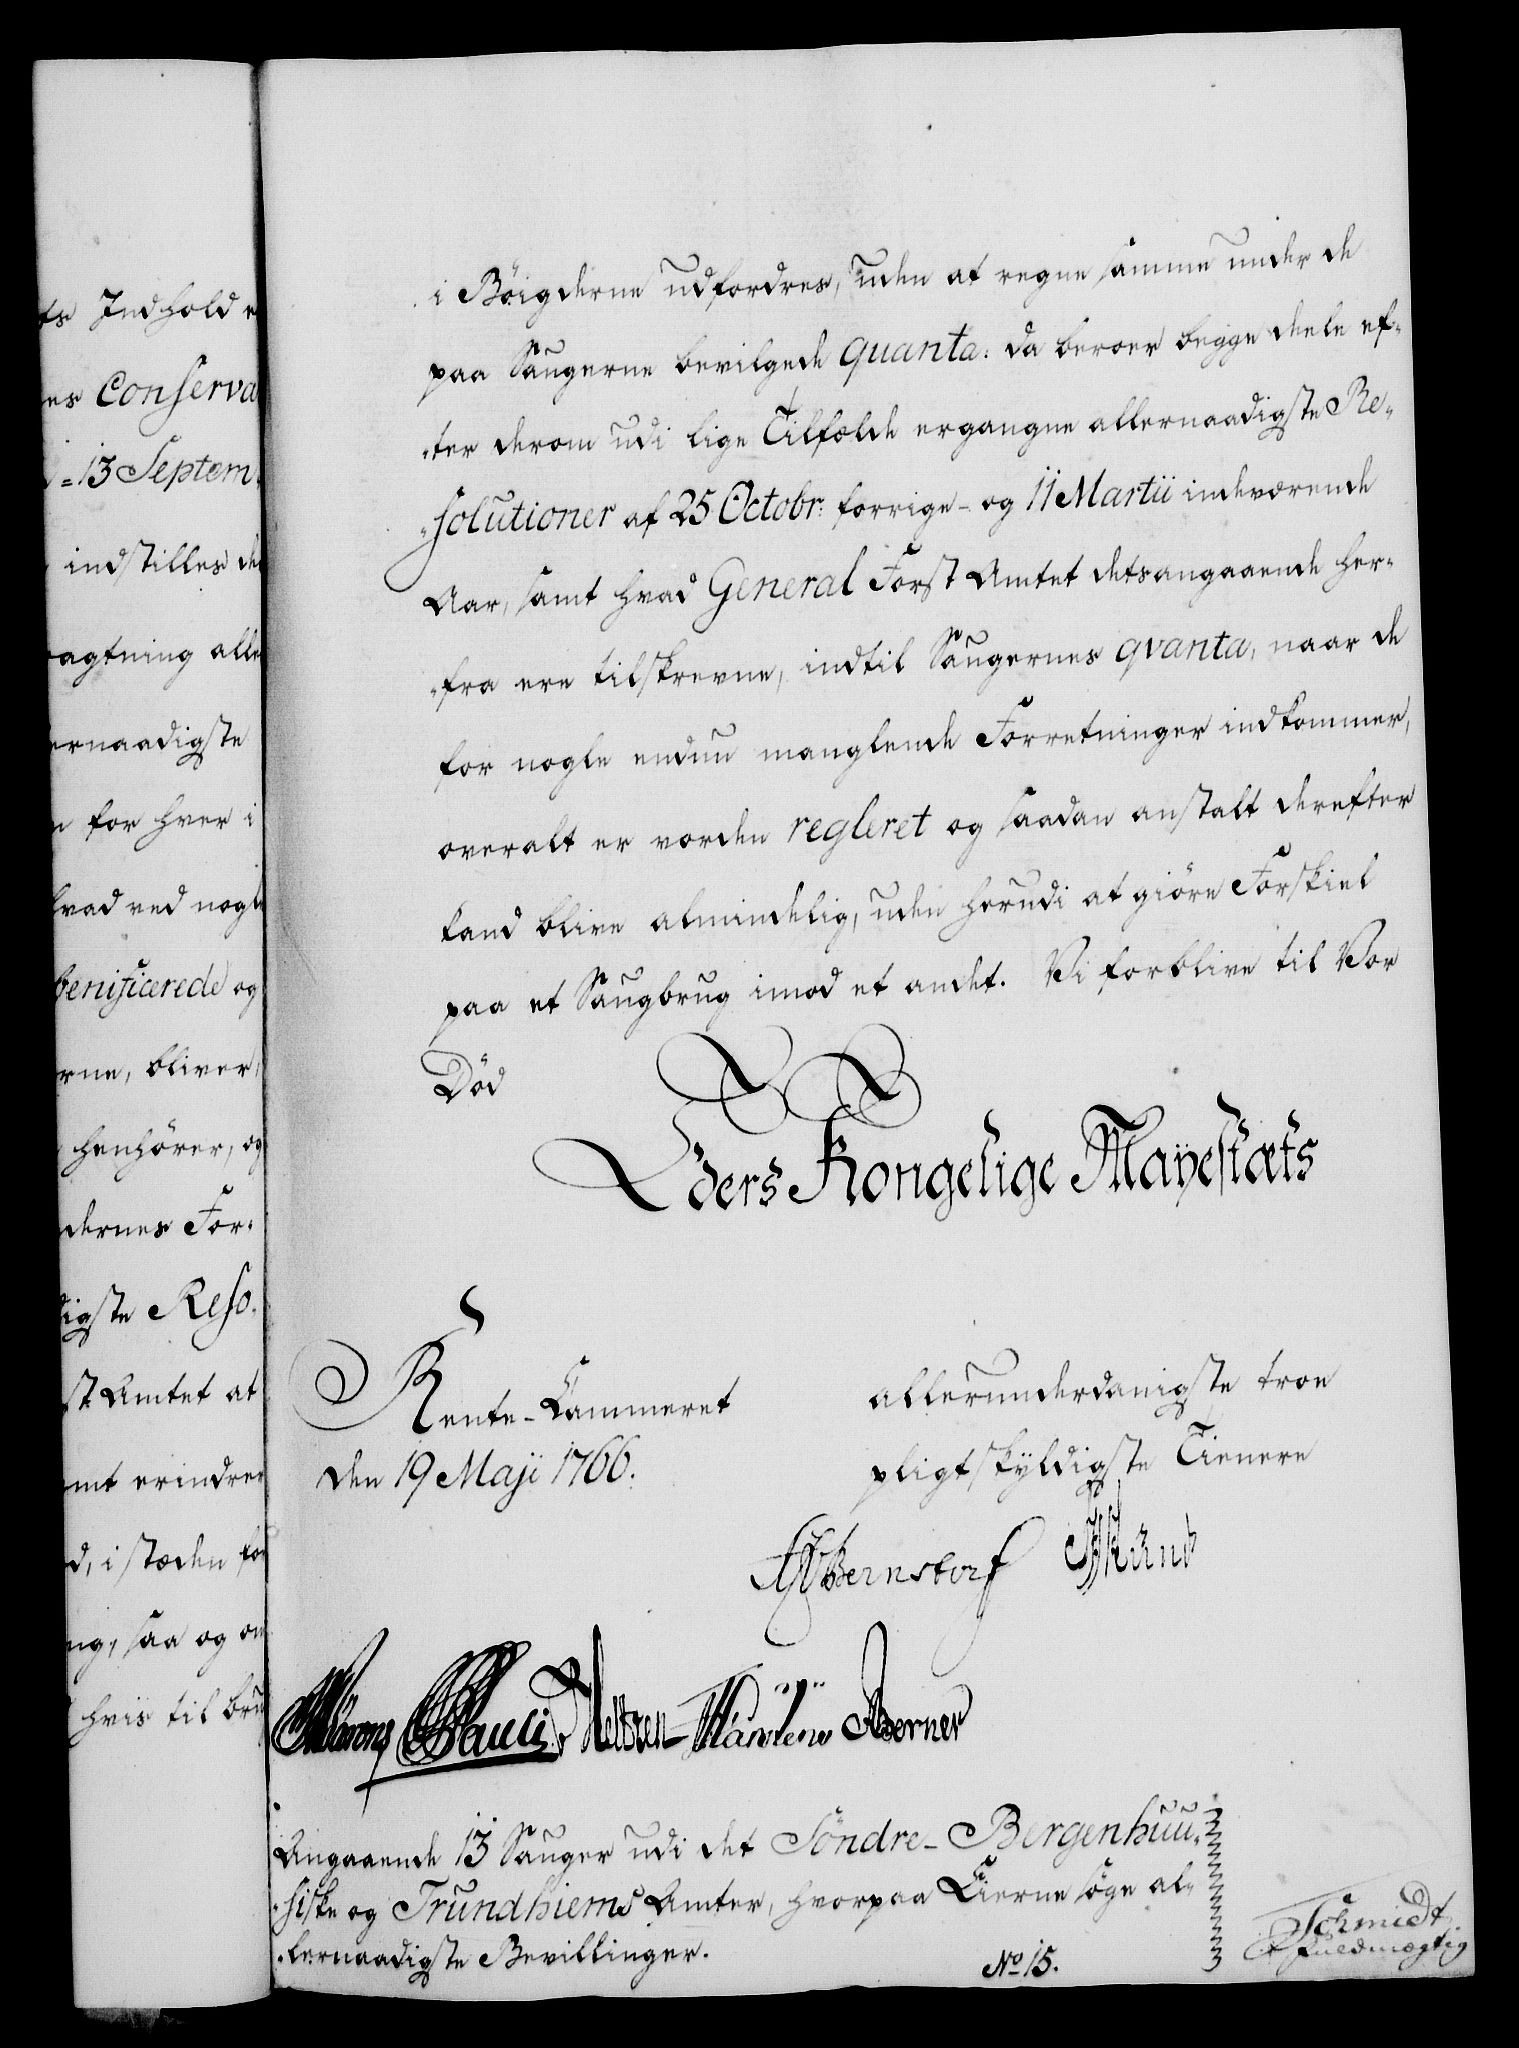 ts Indhold e
es Conserva
13 Septem
indstilles de
agtning alle
ernaadigste
for hver i
hvad ved nogle
benificerede og
rne, bliver,
henhører, og
dernes For-
digste Reso-
st Amtet at
mt erindrer
d, i stæden for
ng, saa og om
hvis til bru
i Böigderne udfordres, uden at regne samme under de
paa Saugerne bevilgede quanta: da beroer begge deele ef-
-ter derom udi lige Tilfælde ergangne allernaadigste Re-
-solutioner af 25 Octobr: forrige- og 11 Martii indeværende
Aar, samt hvad General Forst Amtet detsangaaende her-
-fra ere tilskrevne, indtil Saugernes qvanta, naar de
for nogle endnu manglende Forretninger indkommer,
overalt er vorden regleret og saadan anstalt derefter
kand blive almindelig, uden herudi at giöre Forskiel
paa et Saugbrug imod et andet. Vi forblive til Vor
Död
Eders Kongelige Mayestæts
Rente-Cammeret
den 19 Maji 1766.
allerunderdanigste troe
pligtskÿldigste Tienere
Bernstorf
Pauli Meltzen Berner
Angaaende 13 Sauger udi det Söndre-Bergenhuu-
-siske og Trundhiems Amter, hvorpaa Eierne söge al-
-lernaadigste Bevillinger.
No 15.
Schmidt
Fuldmægtig